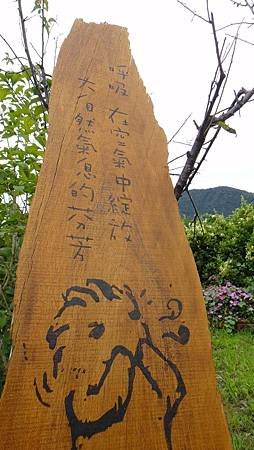 呼吸 在空氣中綻放
大自然氣息的芬芳